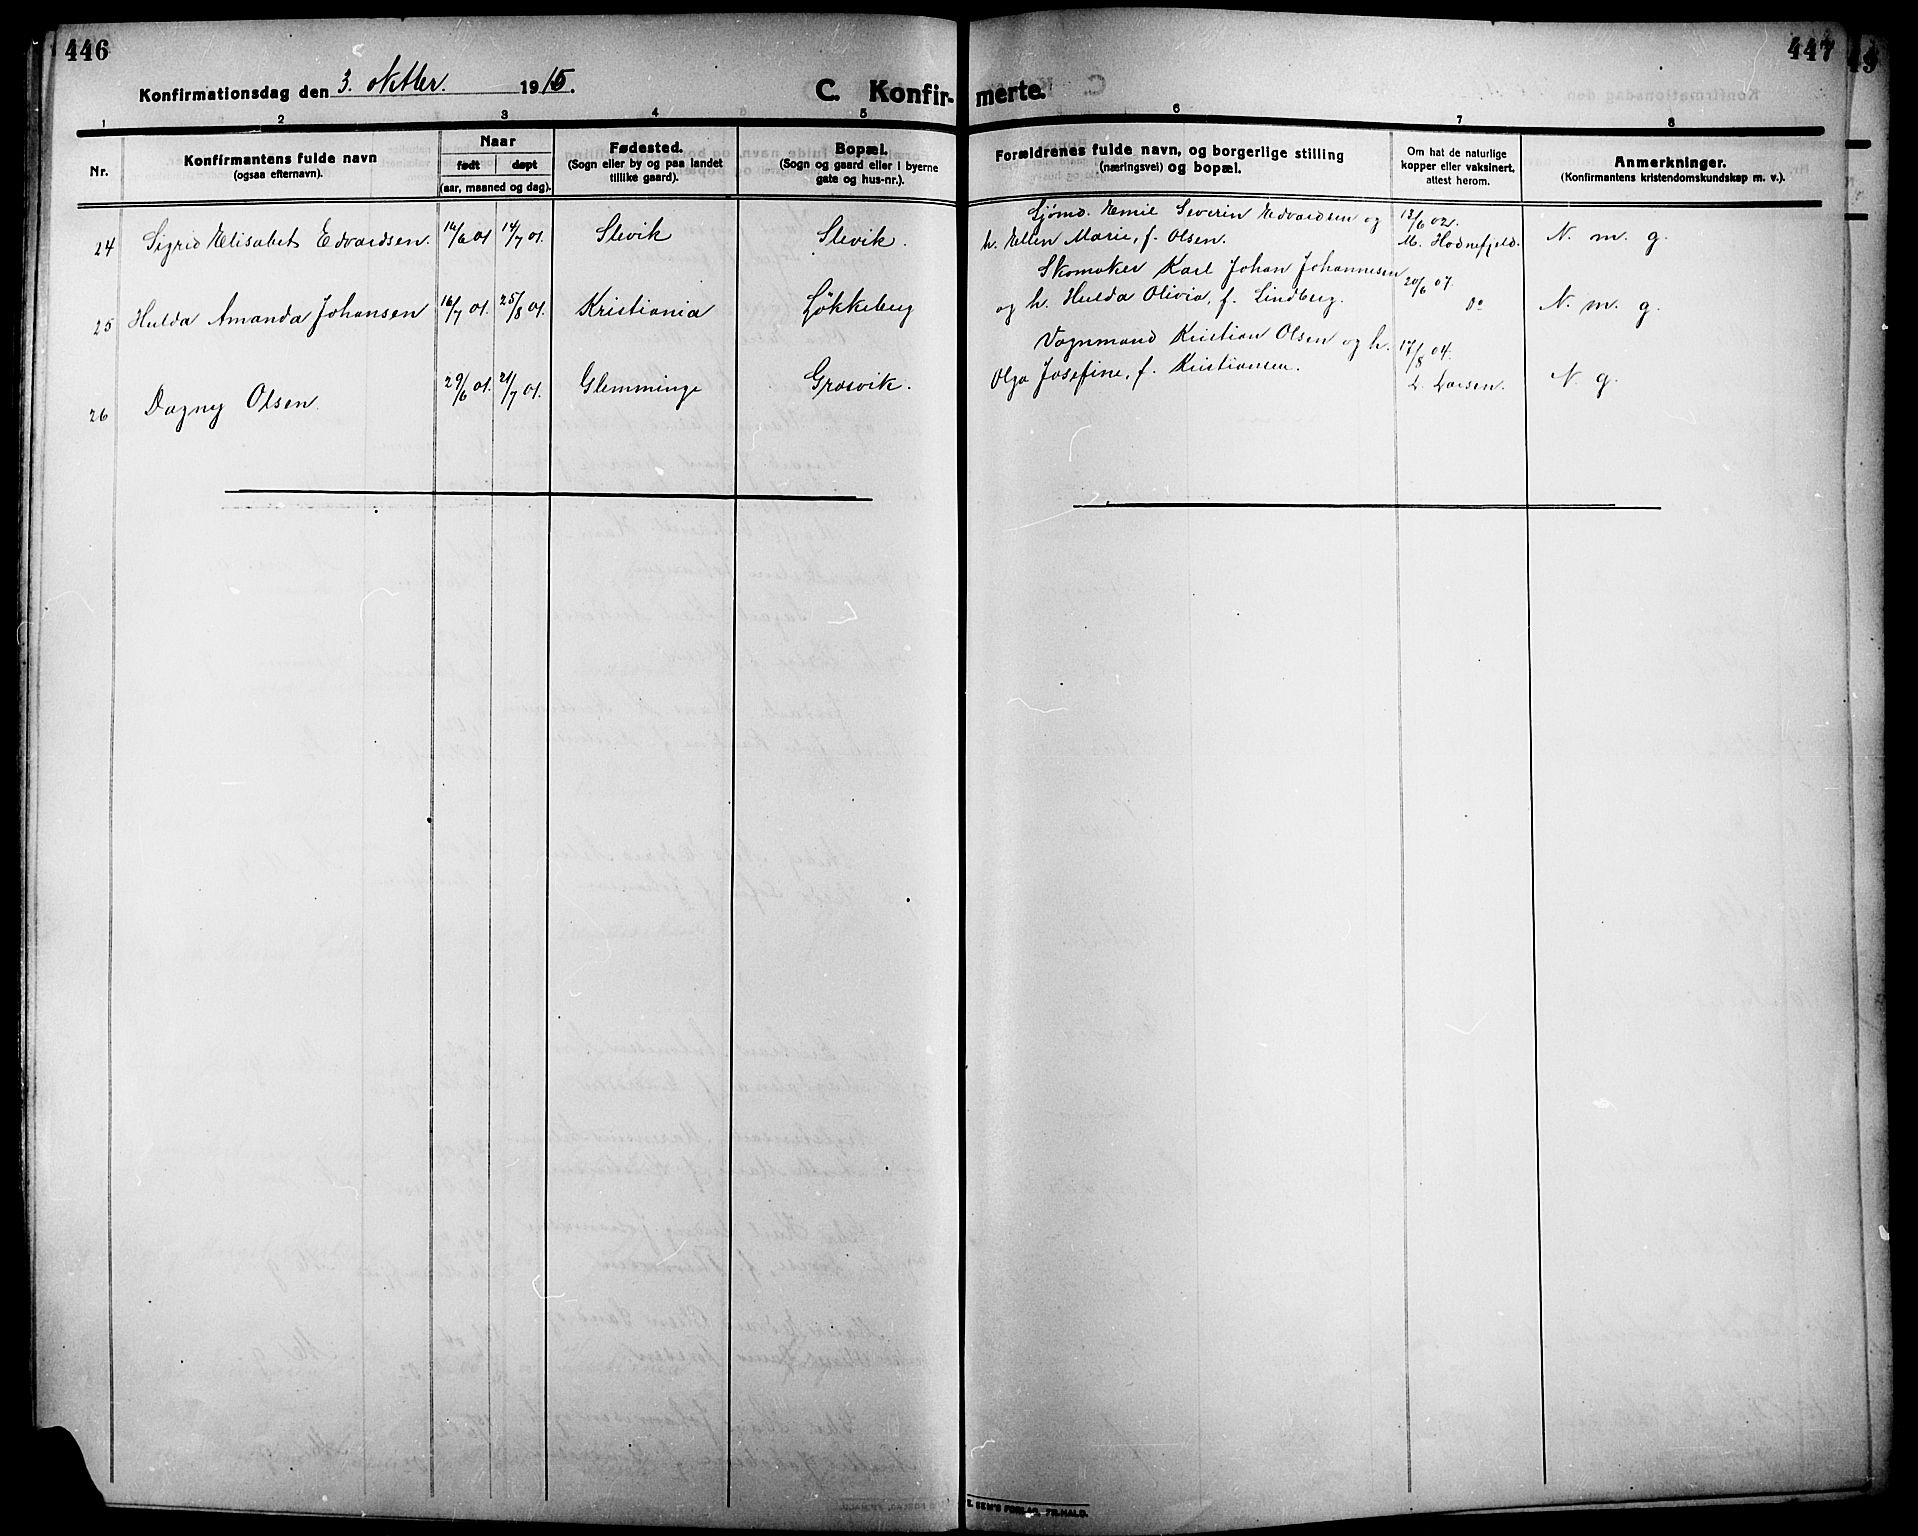 446
Konfirmationsdag den 3. oktber. 1915.
C. Konfir-
merte.
447
1 2 3 4 5 6 7 8
Nr.
Konfirmantens fulde navn
(ogsaa efternavn).
Naar
født døpt
(aar, maaned og dag).
Fødested.
(Sogn eller by og paa landet
tillike gaard).
Bopæl.
(Sogn og gaard eller i byerne
gate og hus-nr.).
Forældrenes fulde navn, og borgerlige stilling
(næringsvei) og bopæl.
Om hat de naturlige
kopper eller vaksinert,
attest herom.
Anmerkninger.
(Konfirmantens kristendomskundskap m. v.).
24 Sigrid Elisabet Edvardsen. /6 01 14/7 01. Slevik Slevik.
Sjømd. Emil Severin Edvardsen og
h. Ellen Marie, f. Olsen.
13/6 02.
M. Hodnefjeld.
N. m. g.
25 Hulda Amanda Johansen 16/7 01. 25/8 01. Kristiania Løkkeberg
Skomaker Karl Johan Johannesen
og h. Hulda Olivia, f. Lindberg.
20/6 07.
Do
N. m. g.
26 Dagny Olsen. 29/6 01. 21/7 01. Glemminge Gresvik.
Vognmand Kristian Olsen og h.
Olga Josefine, f. Kristiansen.
17/8 04.
L. Larsen.
N. g.